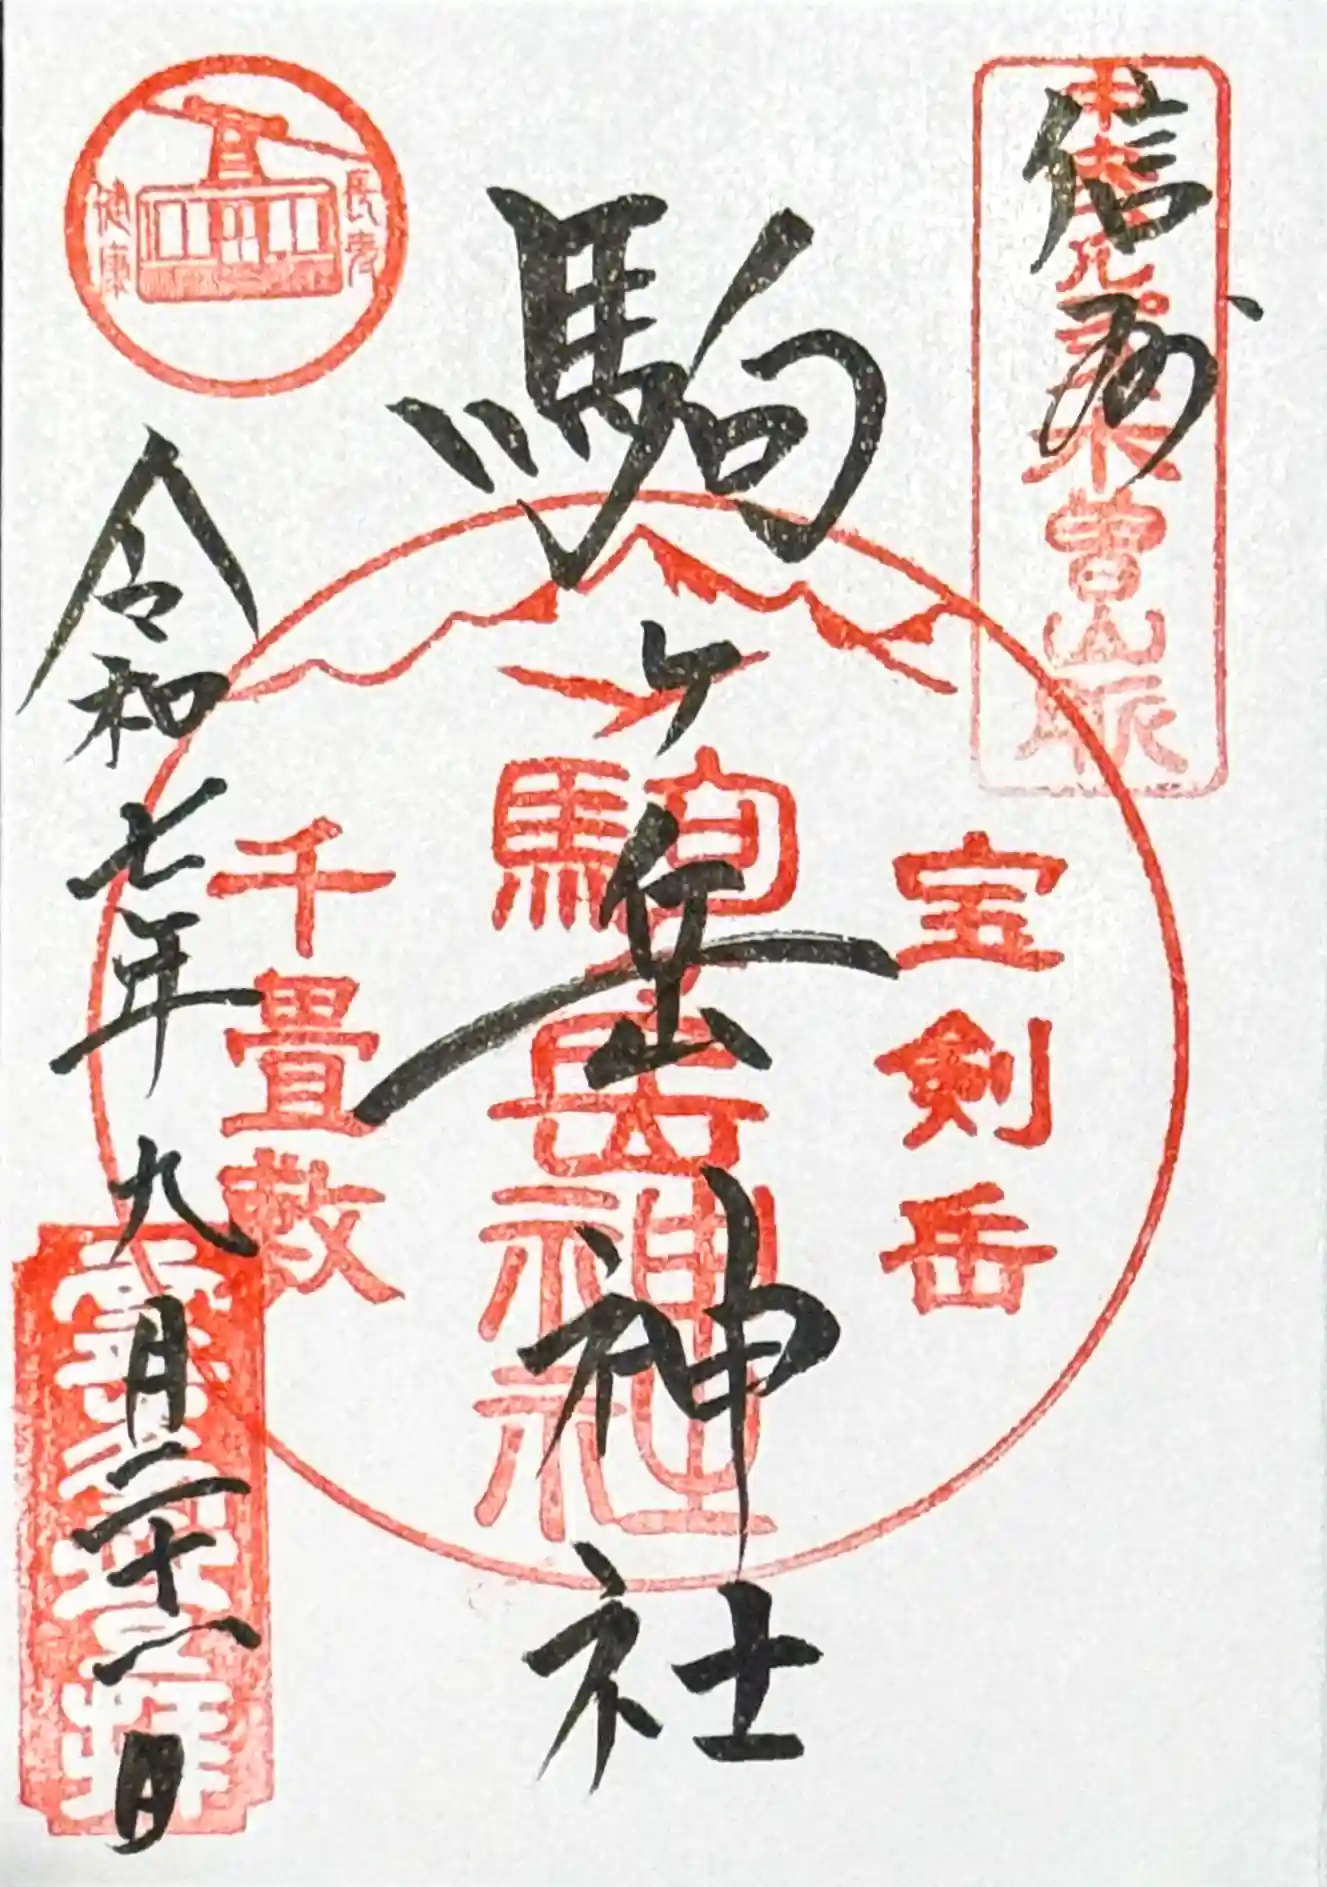 信州
中央アルプス木曽山脈
宝剣岳
駒ヶ岳神社
駒ヶ岳神社
千畳敷
長寿
健康
令和七年九月二十一日